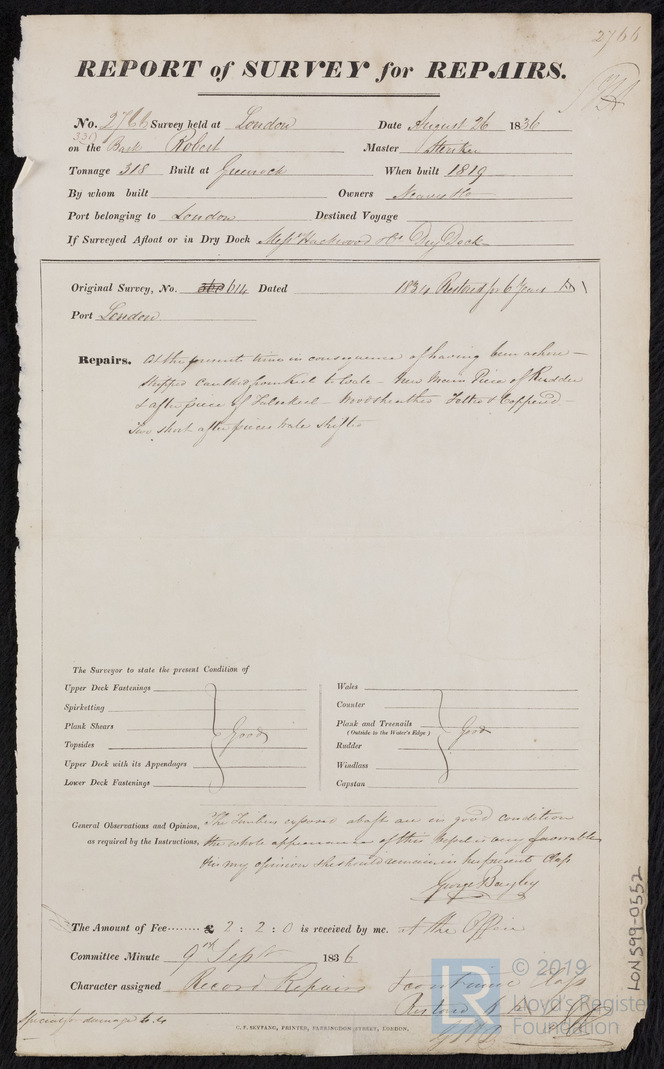 2766
REPORT of SURVEY for REPAIRS.
No. 2766 Survey held at London Date August 26 1836
330
on the Bark Robert Master
Tonnage 318 Built at Greenock When built 1819
By whom built Owners
Port belonging to London Destined Voyage
If Surveyed Afloat or in Dry Dock Messrs Dry Dock
Original Survey, No. 614 Dated 1834 Restored for 6 Years
Port London
Repairs. At the present time in consequence of having been ashore –
Stripped caulked from Keel to Wale – New Main Piece of Rudder
& after piece of Falsekeel – Woodsheathed Felted & Coppered –
Two short after pieces Wale shifted
The Surveyor to state the present Condition of
Upper Deck Fastenings
Spirketting
Plank Shears
Topsides
Upper Deck with its Appendages
Lower Deck Fastenings
Good
Wales
Counter
Plank and Treenails
(Outside to the Water's Edge)
Rudder
Windlass
Capstan
Good
General Observations and Opinion, The Timbers exposed abaft are in good condition
as required by the Instructions, the whole appearance of this Vessel is very favorable
& in my opinion she should remain in her present Class
George Bayley
The Amount of Fee........ £ 2 : 2 : 0 is received by me. At the Office
Committee Minute 9th Septr 1836
Character assigned Record Repairs & continue Class
Restored 6 years
Special for damage
C. F. SEYFANG, PRINTER, FARRINGDON STREET, LONDON.
LON599-0552
LR
© 2019
Lloyd's Register
Foundation